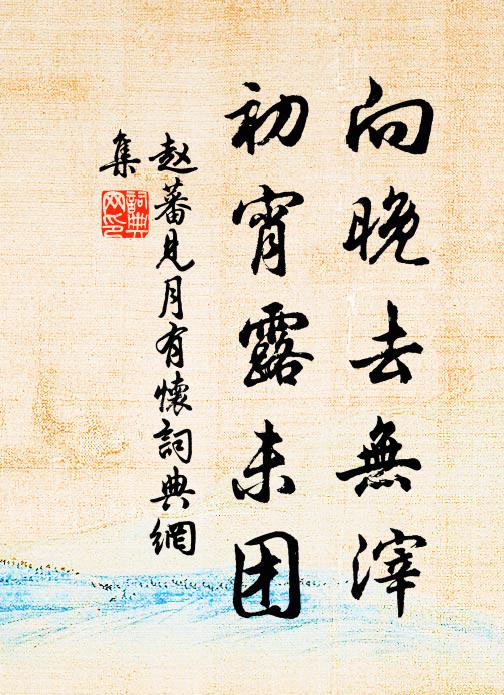 向晚去無滓
初宵露未团
赵蕃見月有懷詞典網
集
詞典
网印